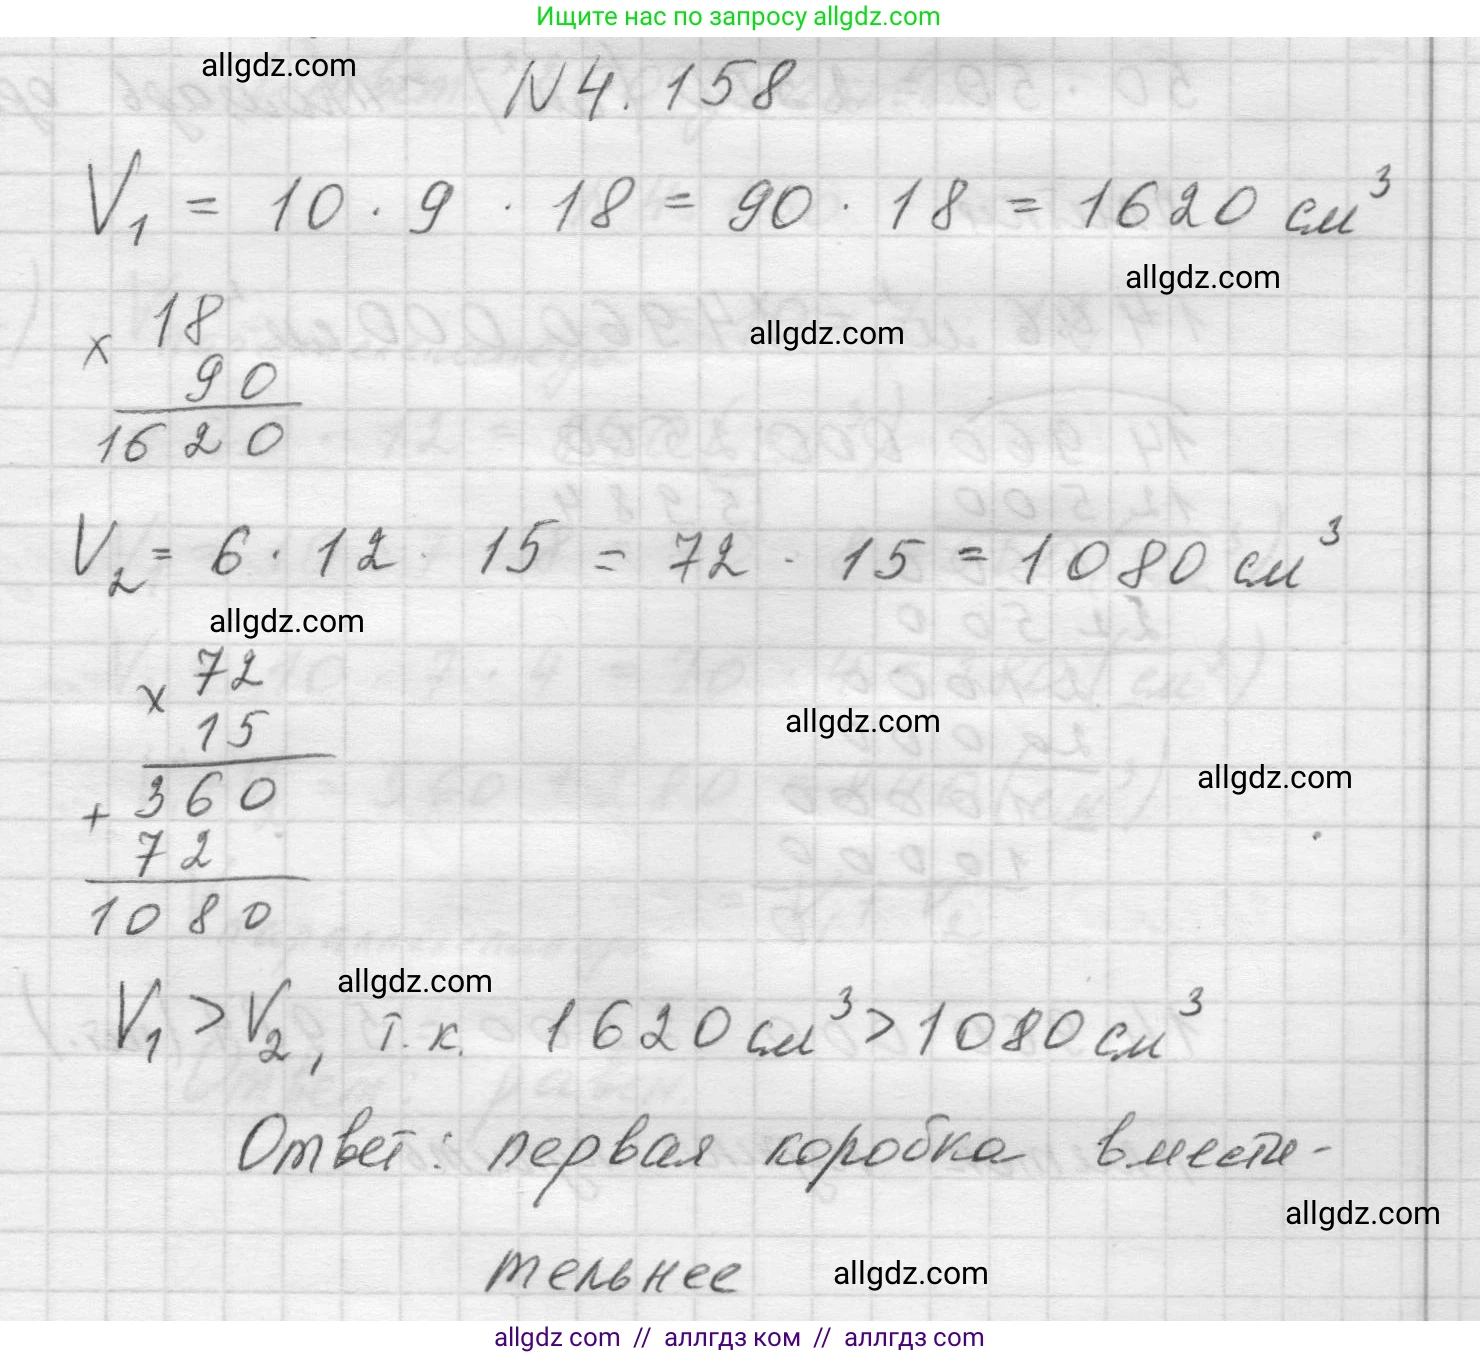 Ищите нас по запросу allgdz.com
allgdz.com
N4.158
V₁ = 10 · 9 · 18 = 90 · 18 = 1620 см³
allgdz.com
allgdz.com
× 18
90
1620
V₂ = 6 · 12 · 15 = 72 · 15 = 1080 см³
allgdz.com
× 72
15
allgdz.com
allgdz.com
+ 360
72
1080
allgdz.com
V₁ > V₂, т.к. 1620 см³ > 1080 см³
Ответ: первая коробка вмести-
allgdz.com
тельнее
allgdz.com
allgdz com // аллгдз ком // аллгдз com